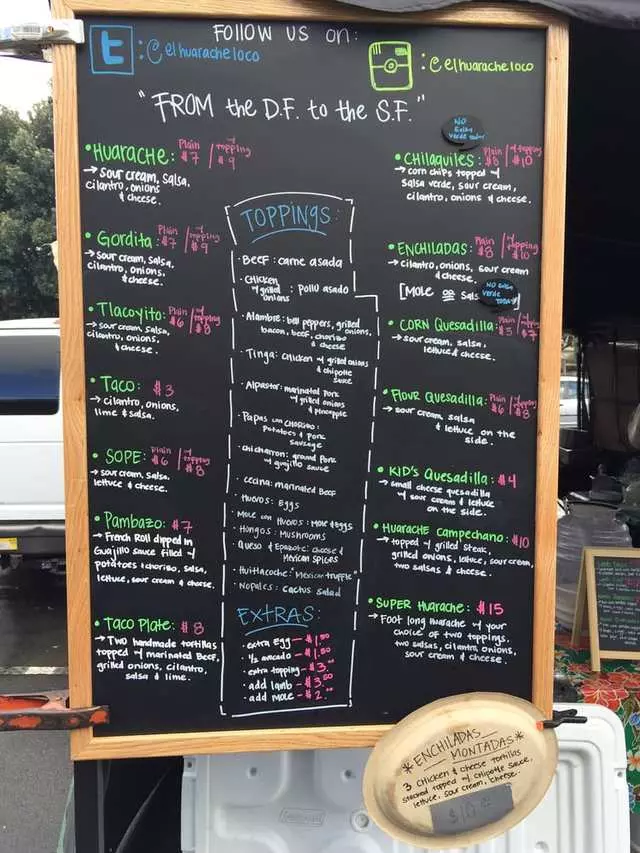 FOLLOW US on:
t : @elhuaracheloco
: @elhuaracheloco
"FROM the D.F. to the S.F."
• HUARACHE: Plain $7 / w/ topping $9
→ sour cream, salsa,
cilantro, onions
& cheese.
• Gordita: Plain $7 / w/ topping $9
→ sour cream, salsa,
cilantro, onions,
& cheese.
• Tlacoyito: Plain $6 / w/ topping $8
→ sour cream, salsa,
cilantro, onions,
& cheese.
• Taco: $3
→ cilantro, onions,
lime & salsa.
• SOPE: Plain $6 / w/ topping $8
→ sour cream, salsa,
lettuce & cheese.
• Pambazo: $7
→ French Roll dipped in
Guajillo sauce filled w/
potatoes & chorizo, salsa,
lettuce, sour cream & cheese.
• Taco Plate: $8
→ Two handmade tortillas
topped w/ marinated Beef,
grilled onions, cilantro,
salsa & lime.
TOPPINGS:
• Beef: carne asada
• Chicken w/ grilled onions : pollo asado
• Alambre: bell peppers, grilled onions,
bacon, beef, chorizo
& cheese
• Tinga: chicken w/ grilled onions
& chipotle
sauce
• Alpastor: marinated pork
w/ grilled onions
& pineapple
• Papas con chorizo:
Potatoes & pork
sausage
• Chicharron: ground pork
w/ guajillo sauce
• Cecina: marinated Beef
• Huevos: Eggs
• Mole con Huevos: Mole & Eggs
• Hongos: Mushrooms
• Queso & Epazote: cheese &
Mexican spices
• Huitlacoche: Mexican truffle
• Nopales: cactus salad
EXTRAS:
• extra egg — $1.50
• 1/2 avocado — $1.50
• extra topping — $3.00
• add lamb — $3.50
• add mole — $2.00
NO
Salsa
Verde today
• Chilaquiles: Plain $8 / w/ topping $10
→ corn chips topped w/
salsa verde, sour cream,
cilantro, onions & cheese.
• ENCHILADAS: Plain $8 / w/ topping $10
→ cilantro, onions, sour cream
& cheese.
[Mole OR Sals
NO Salsa
Verde
TODAY
• CORN Quesadilla: Plain $5 / w/ topping $7
→ sour cream, salsa,
lettuce & cheese.
• Flour Quesadilla: Plain $6 / w/ topping $8
→ sour cream, salsa
& lettuce on the
side.
• KID'S Quesadilla: $4
→ small cheese quesadilla
w/ sour cream & lettuce
on the side.
• HUARACHE Campechano: $10
→ topped w/ grilled steak,
grilled onions, lettuce, sour cream,
two salsas & cheese.
• SUPER Huarache: $15
→ Foot long Huarache w/ your
choice of two toppings,
two salsas, cilantro, onions,
sour cream & cheese.
* ENCHILADAS
MONTADAS *
3 chicken & cheese tortillas
stacked topped w/ chipotle sauce,
lettuce, sour cream, cheese.
$10